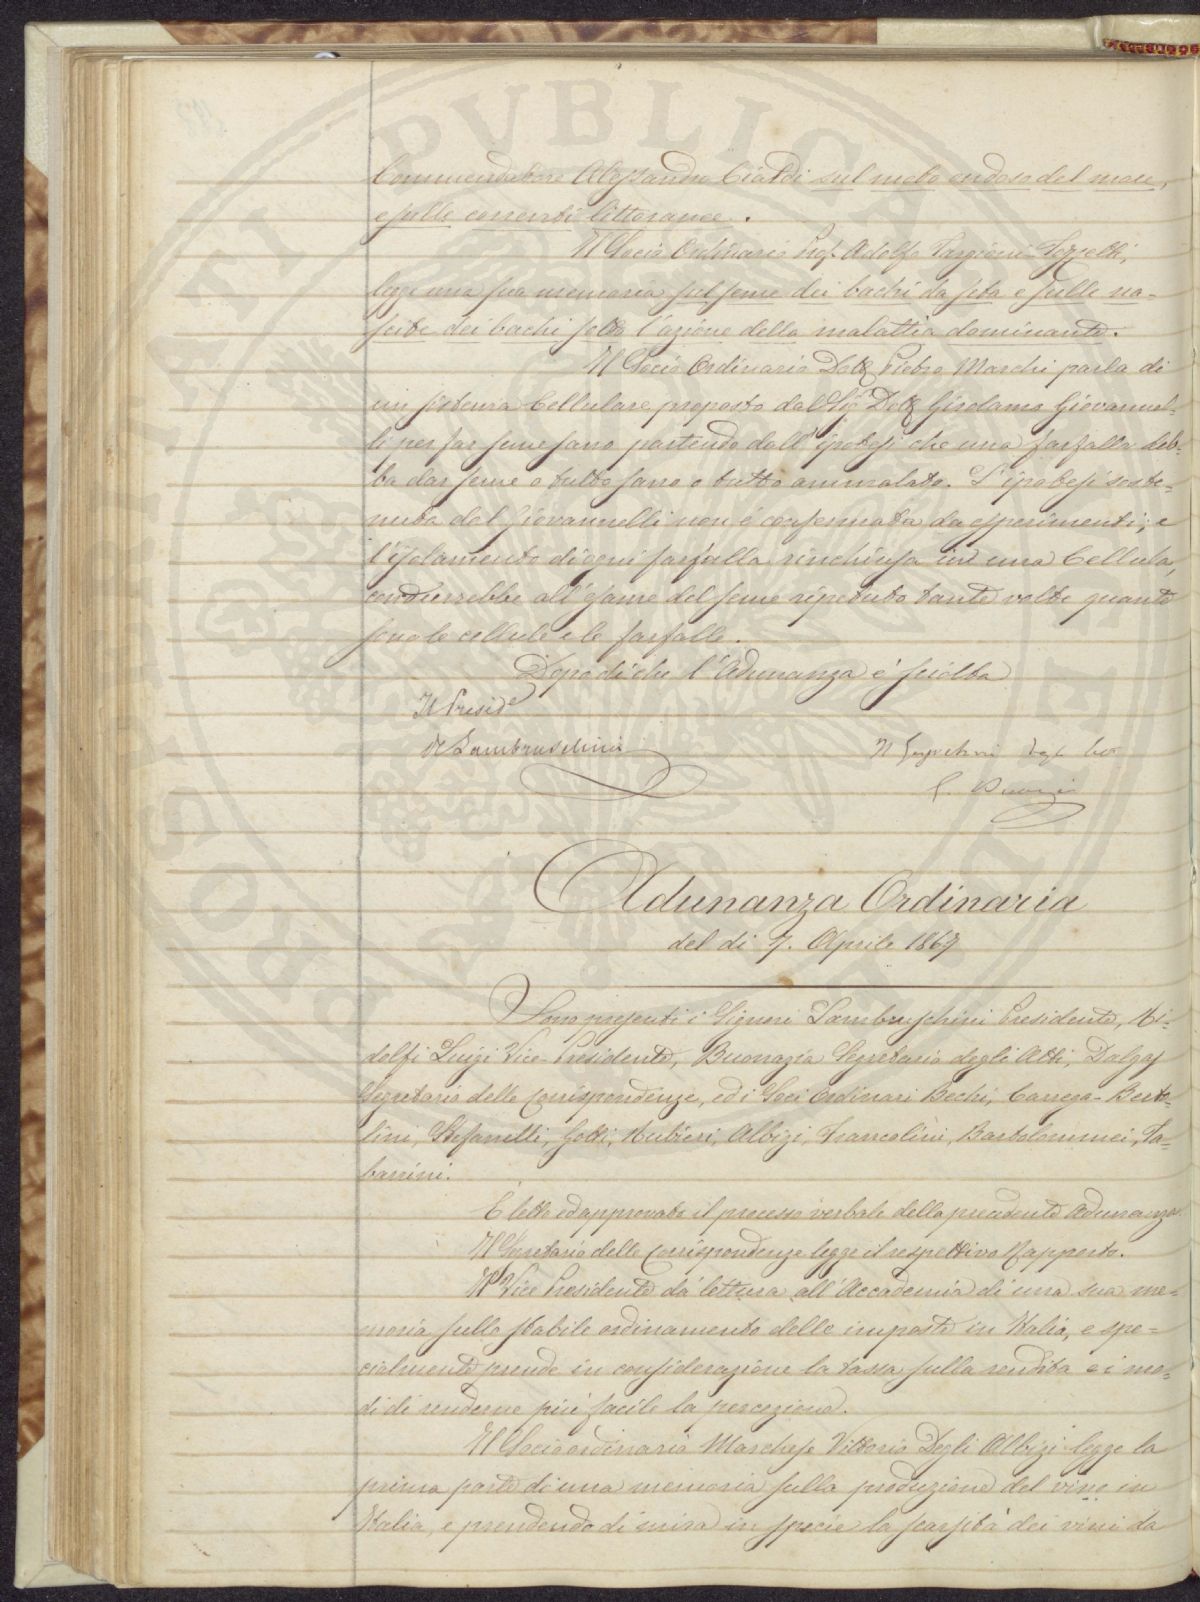 Commendatore Alessandro Cialdi sul moto ondoso del mare,
e sulle correnti littoranee.
Il Socio Ordinario Prof. Adolfo Targioni-Tozzetti,
legge una sua memoria sul seme dei bachi da seta e sulle na-
scite dei bachi sotto l'azione della malattia dominante.
Il Socio Ordinario Dott. Pietro Marchi parla di
un sistema Cellulare proposto dal Sig. Dott. Girolamo Giovannel-
li per far seme sano partendo dall'ipotesi che una farfalla deb-
ba dar seme o tutto sano o tutto ammalato. L'ipotesi soste-
nuta dal Giovannelli non è confermata da esperimenti; e
l'isolamento di ogni farfalla rinchiusa in una Cellula,
condurrebbe all'esame del seme ripetuto tante volte quante
sono le cellule e le farfalle.
Dopo di che l'Adunanza è sciolta
Il Preside
R Lambruschini
Il Segretario degli Atti
Adunanza Ordinaria
del di 7. Aprile 1867
Sono presenti i Signori Lambruschini Presidente, Ri-
dolfi Luigi Vice-Presidente, Buonazia Segretario degli Atti, Dalgas
Segretario delle Corrispondenze, ed i Soci Ordinari Bechi, Carega-Berto-
lini, Stefanelli, Gotti, Rubieri, Albizi, Francolini, Bartolommei, Ta-
barrini.
È letto ed approvato il processo verbale della precedente Adunanza.
Il Segretario delle Corrispondenze legge il respettivo Rapporto.
Il Vice Presidente dà lettura all'Accademia di una sua me-
moria sullo stabile ordinamento delle imposte in Italia, e spe-
cialmente prende in considerazione la tassa sulla rendita e i mo-
di di renderne più facile la percezione.
Il Socio ordinario Marchese Vittorio Degli Albizi legge la
prima parte di una memoria sulla produzione del vino in
Italia, e prendendo di mira in specie la scarsità dei vini da